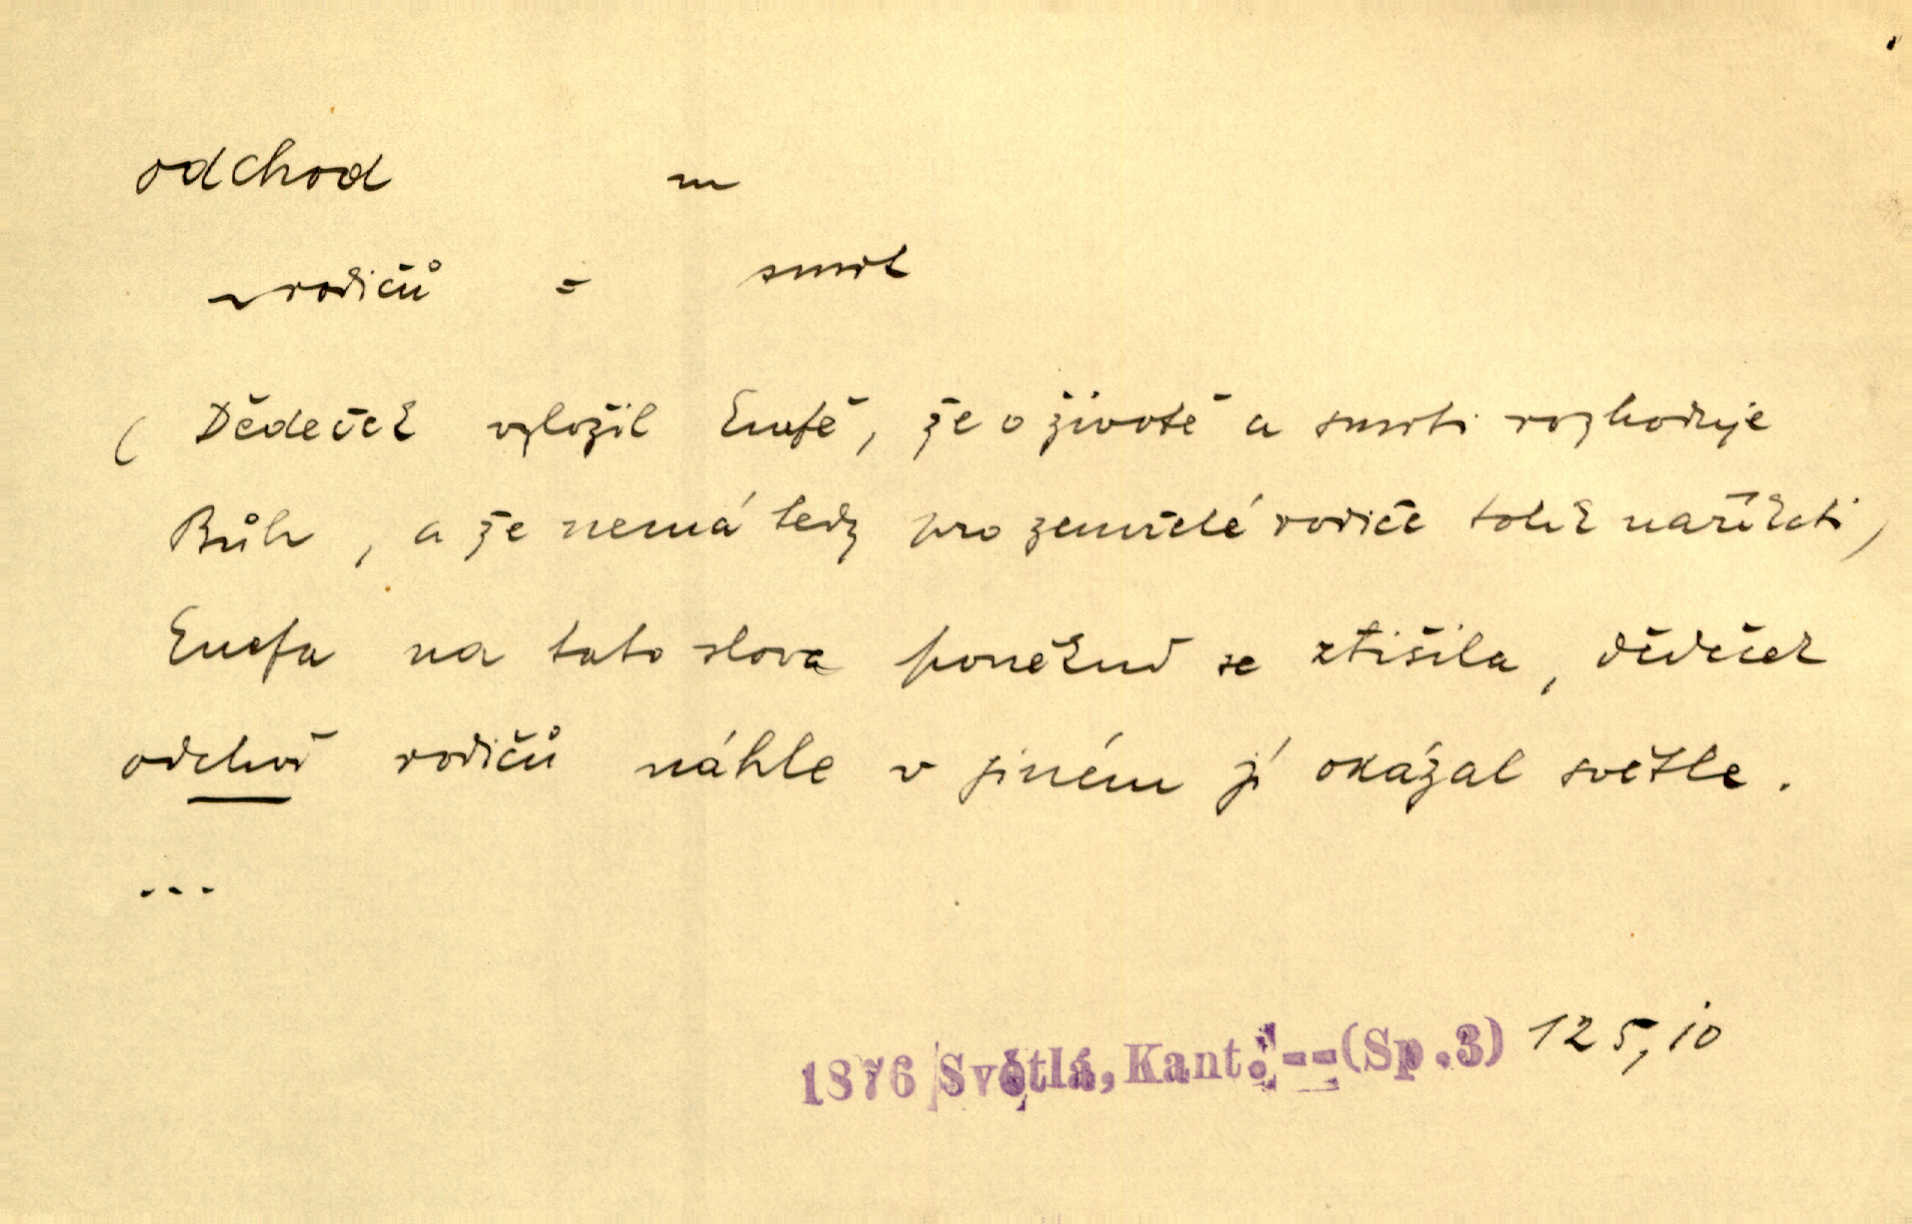 odchod m
~ rodičů = smrt
( Dědeček vyložil Enefě, že o životě a smrti rozhoduje
Bůh, a že nemá tedy pro zemřelé rodiče tolik naříkati)
Enefa na tato slova poněkud se ztišila, dědeček
odchod rodičů náhle v jiném jí okázal světle.
...
1876 Světlá, Kant. -- (Sp.3) 125,10